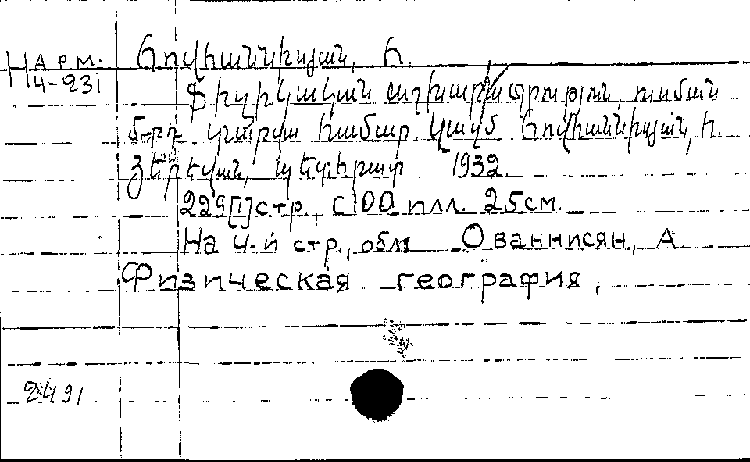 На арм. Հովհաննիսյան, Հ.
Ч-231
Ֆիզիկական աշխարհագրության, ուսման
հ-րդ տարվա համար կազմ Հովհաննիսյան, Հ.
Յերեվան, պետհրատ 1932.
229[1]стр. с 100 илл. 25см.
На 4.й стр. обл. Ованнисян, А.
Физическая география.
2491